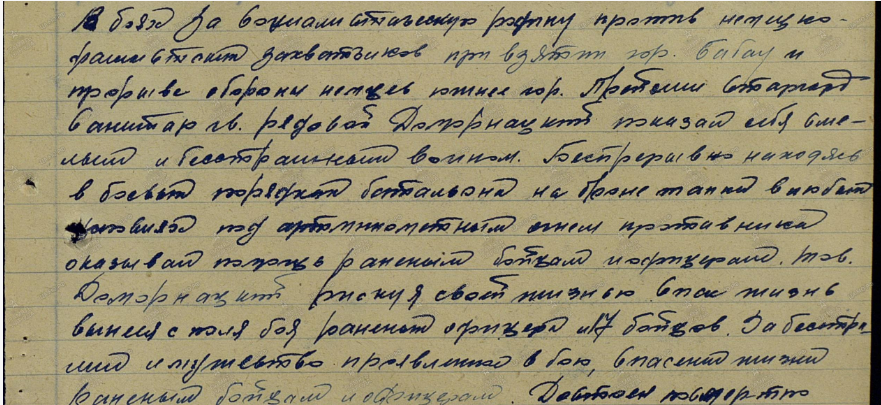 В боях за социалистическую родину против немецко-
фашистских захватчиков при взятии гор. и
прорыве обороны немцев южнее гор. Штаргард
санитар гв. рядовой показал себя сме-
лым и бесстрашным воином. Беспрерывно находясь
в боевых порядках батальона на броне танка в любых
условиях под артминометным огнем противника
оказывал помощь раненым бойцам и офицерам. тов.
рискуя своей жизнью спас жизнь
вынеся с поля боя раненых офицера и 17 бойцов. За бесстра-
шие и мужество проявленное в бою, спасение жизни
раненым бойцам и офицерам. Достоен